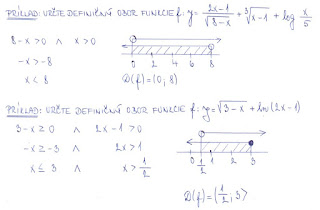 PRÍKLAD: URČTE DEFINIČNÝ OBOR FUNCIE f: y = (2x-1)/√(8-x) + ∛(x-1) + log x/5
8-x>0 ∧ x>0
-x>-8
x<8
0 2 4 6 8
D(f)=(0;8)
PRÍKLAD: URČTE DEFINIČNÝ OBOR FUNKCIE f: y=√(3-x) + ln(2x-1)
3-x≥0 ∧ 2x-1>0
-x≥-3 ∧ 2x>1
x≤3 x>1/2
0 1/2 1 2 3
D(f)=(1/2;3⟩